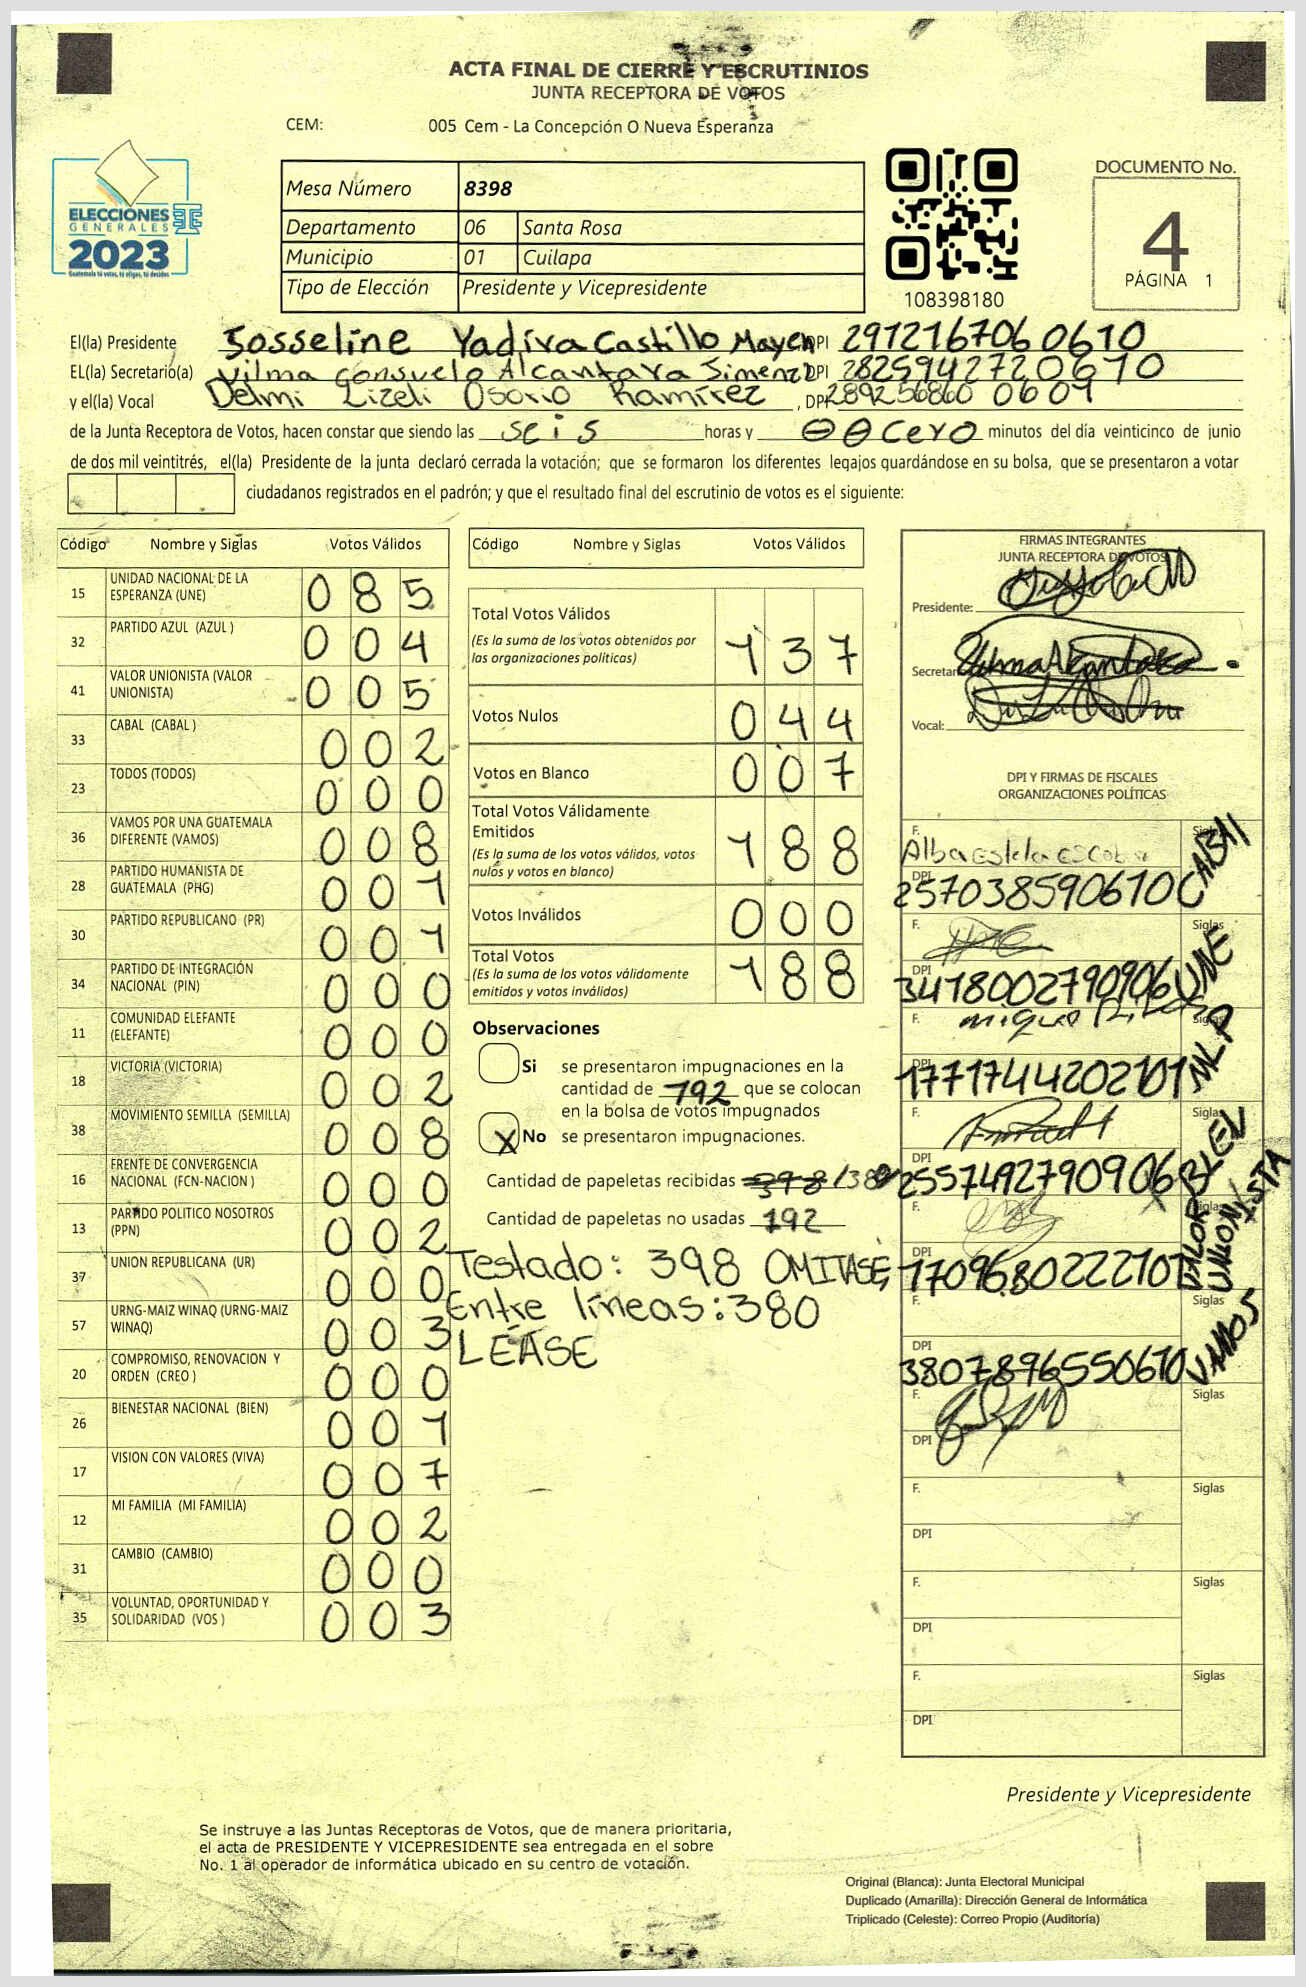 ACTA FINAL DE CIERRE Y ESCRUTINIOS
JUNTA RECEPTORA DE VOTOS
CEM: 005 Cem - La Concepción O Nueva Esperanza
ELECCIONES
GENERALES
2023
Guatemala tú votas, tú eliges, tú decides
Mesa Número 8398
Departamento 06 Santa Rosa
Municipio 01 Cuilapa
Tipo de Elección Presidente y Vicepresidente
108398180
DOCUMENTO No.
4
PÁGINA 1
El(la) Presidente Josseline Yadira Castillo Mayen DPI 2912167060610
EL(la) Secretario(a) Vilma Consuelo Alcantara Jimenez DPI 2825942720610
y el(la) Vocal Delmi Lizeli Osorio Ramírez , DPI 2892568600609
de la Junta Receptora de Votos, hacen constar que siendo las seis horas y 00 cero minutos del día veinticinco de junio
de dos mil veintitrés, el(la) Presidente de la junta declaró cerrada la votación; que se formaron los diferentes legajos guardándose en su bolsa, que se presentaron a votar
ciudadanos registrados en el padrón; y que el resultado final del escrutinio de votos es el siguiente:
Código Nombre y Siglas Votos Válidos
15 UNIDAD NACIONAL DE LA ESPERANZA (UNE) 085
32 PARTIDO AZUL (AZUL ) 004
41 VALOR UNIONISTA (VALOR UNIONISTA) 005
33 CABAL (CABAL ) 002
23 TODOS (TODOS) 000
36 VAMOS POR UNA GUATEMALA DIFERENTE (VAMOS) 008
28 PARTIDO HUMANISTA DE GUATEMALA (PHG) 001
30 PARTIDO REPUBLICANO (PR) 001
34 PARTIDO DE INTEGRACIÓN NACIONAL (PIN) 000
11 COMUNIDAD ELEFANTE (ELEFANTE) 000
18 VICTORIA (VICTORIA) 002
38 MOVIMIENTO SEMILLA (SEMILLA) 008
16 FRENTE DE CONVERGENCIA NACIONAL (FCN-NACION ) 000
13 PARTIDO POLITICO NOSOTROS (PPN) 002
37 UNION REPUBLICANA (UR) 000
57 URNG-MAIZ WINAQ (URNG-MAIZ WINAQ) 003
20 COMPROMISO, RENOVACION Y ORDEN (CREO ) 000
26 BIENESTAR NACIONAL (BIEN) 001
17 VISION CON VALORES (VIVA) 007
12 MI FAMILIA (MI FAMILIA) 002
31 CAMBIO (CAMBIO) 000
35 VOLUNTAD, OPORTUNIDAD Y SOLIDARIDAD (VOS ) 003
Código Nombre y Siglas Votos Válidos
Total Votos Válidos
(Es la suma de los votos obtenidos por las organizaciones políticas) 137
Votos Nulos 044
Votos en Blanco 007
Total Votos Válidamente Emitidos
(Es la suma de los votos válidos, votos nulos y votos en blanco) 188
Votos Inválidos 000
Total Votos
(Es la suma de los votos válidamente emitidos y votos inválidos) 188
Observaciones
Si se presentaron impugnaciones en la
cantidad de 192 que se colocan
en la bolsa de votos impugnados
X No se presentaron impugnaciones.
Cantidad de papeletas recibidas 398 /380
Cantidad de papeletas no usadas 192
Testado: 398 OMITASE,
Entre líneas: 380
LÉASE
FIRMAS INTEGRANTES
JUNTA RECEPTORA DE VOTOS
Presidente:
Secretar
Vocal:
DPI Y FIRMAS DE FISCALES
ORGANIZACIONES POLÍTICAS
F. Alba Estela Escobar Siglas CABAL
DPI 257038590610
F. Siglas UNE
DPI 3418002790906
F. Siglas MLP
DPI 1771744202101
F. Siglas BIEN
DPI 2557492790906
F. Siglas VALOR UNIONISTA
DPI 1709680222101
F. Siglas VAMOS
DPI 3807896550610
F. Siglas
DPI
F. Siglas
DPI
F. Siglas
DPI
F. Siglas
DPI
Presidente y Vicepresidente
Se instruye a las Juntas Receptoras de Votos, que de manera prioritaria,
el acta de PRESIDENTE Y VICEPRESIDENTE sea entregada en el sobre
No. 1 al operador de informática ubicado en su centro de votación.
Original (Blanca): Junta Electoral Municipal
Duplicado (Amarilla): Dirección General de Informática
Triplicado (Celeste): Correo Propio (Auditoría)